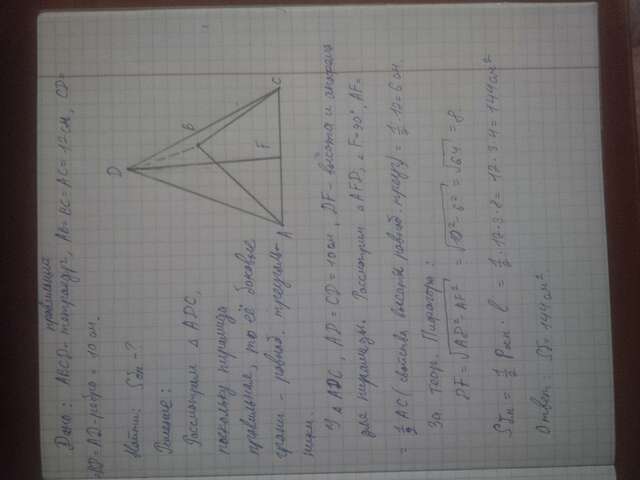 правильный
Дано: ABCD - тетраэдр, AB=BC=AC=12см, CD=
=BD=AD-ребро=10см.
Найти: Sбп-?
Решение:
Рассмотрим △ADC,
поскольку пирамида
правильная, то её боковые
грани - равноб. треуголь-
ники.
D
B
A
F
C
В △ADC, AD=CD=10см, DF-высота и апофема
для пирамиды. Рассмотрим △AFD, ∠F=90°, AF=
=1/2 AC (свойства высоты равноб. треуг)=1/2·12=6см.
За теор. Пифагора:
DF=√AD²-AF² =√10²-6² =√64 =8
Sбп=1/2 Pосн·l=1/2·12·3·8=12·3·4=144см²
Ответ: Sб.=144см².